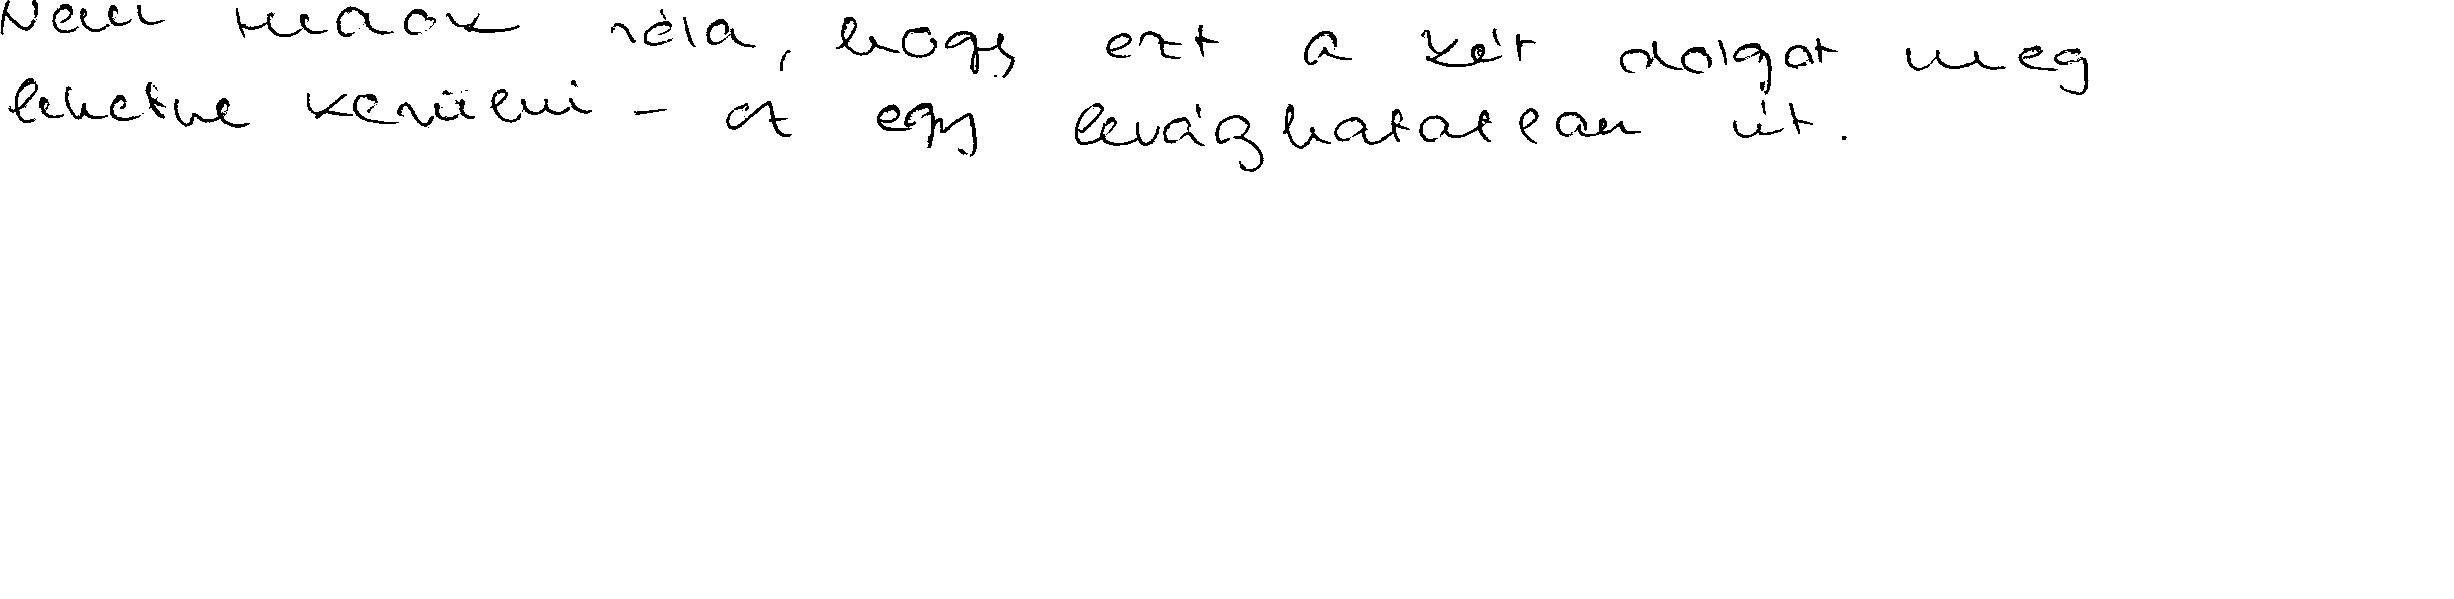 Nem tudok róla, hogy ezt a két dolgot meg
lehetne kerülni - ez egy levághatatlan út.